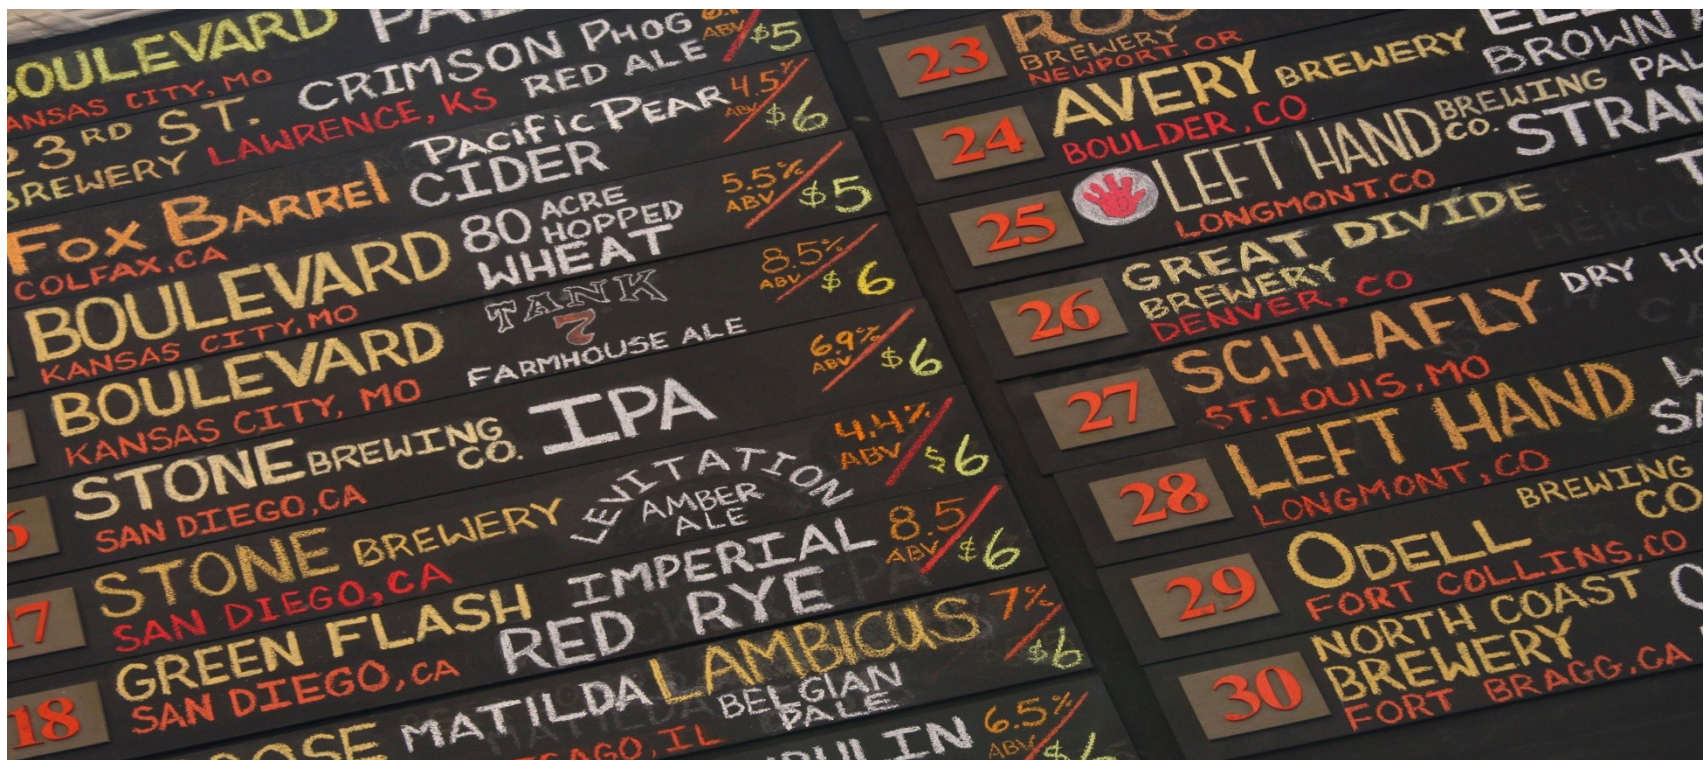 BOULEVARD
KANSAS CITY, MO
ABV $5
23RD ST.
BREWERY
LAWRENCE, KS
CRIMSON PHOG
RED ALE
4.5%
ABV $6
FOX BARREL
COLFAX, CA
PACIFIC PEAR
CIDER
5.5%
ABV $5
BOULEVARD
KANSAS CITY, MO
80 ACRE
HOPPED
WHEAT
8.5%
ABV $6
BOULEVARD
KANSAS CITY, MO
TANK
7
FARMHOUSE ALE
6.9%
ABV $6
16
STONE BREWING
CO.
SAN DIEGO, CA
IPA
4.4%
ABV $6
17
STONE BREWERY
SAN DIEGO, CA
LEVITATION
AMBER
ALE
8.5
ABV $6
18
GREEN FLASH
SAN DIEGO, CA
IMPERIAL
RED RYE
7%
$6
MATILDA LAMBICUS
BELGIAN
PALE
6.5%
ABV $6
23
BREWERY
NEWPORT, OR
24
AVERY BREWERY
BOULDER, CO
BROWN
25
LEFT HAND BREWING
CO.
LONGMONT, CO
26
GREAT DIVIDE
BREWERY
DENVER, CO
27
SCHLAFLY
ST. LOUIS, MO
DRY
28
LEFT HAND
LONGMONT, CO
29
ODELL BREWING
CO
FORT COLLINS, CO
30
NORTH COAST
BREWERY
FORT BRAGG, CA